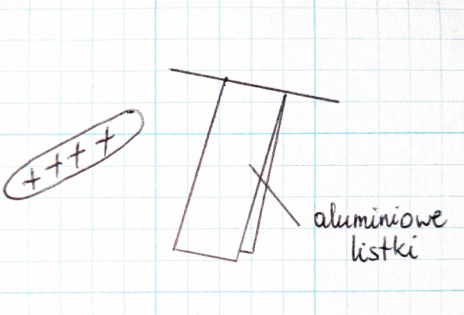 ++++
aluminiowe
listki